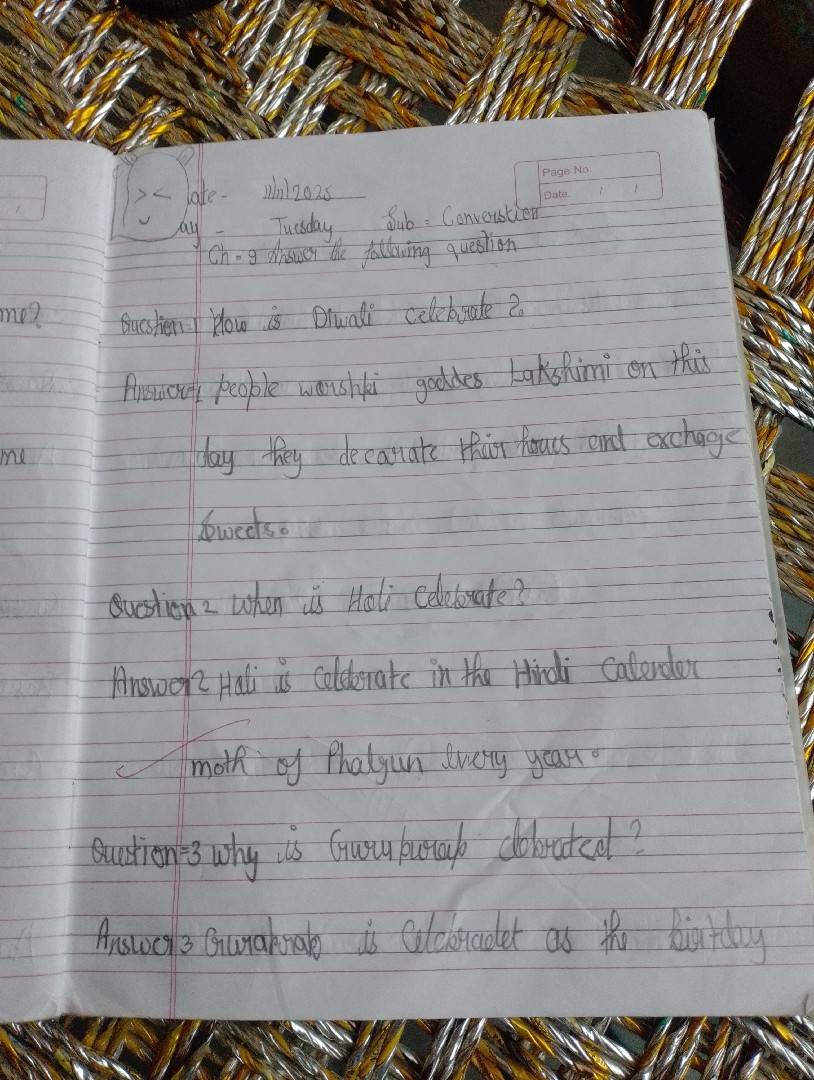 me?
me
Page No.
Date / /
ate - 11/11/2025
ay - Tuesday Sub = Converstion
Ch - 9 Answer the following question
Question 1 How is Diwali celebrate ?
Answer 1 people worshki goddes Lakshimi on this
day they decarate thir hours and exchage
Sweets.
Question 2 When is Holi Celebrate?
Answer 2 Hali is Celebrate in the Hindi Calender
moth of Phalgun Every year.
Question=3 why is Gurupurab clebrated ?
Answer 3 Gurabrab is Celebradet as the birtday